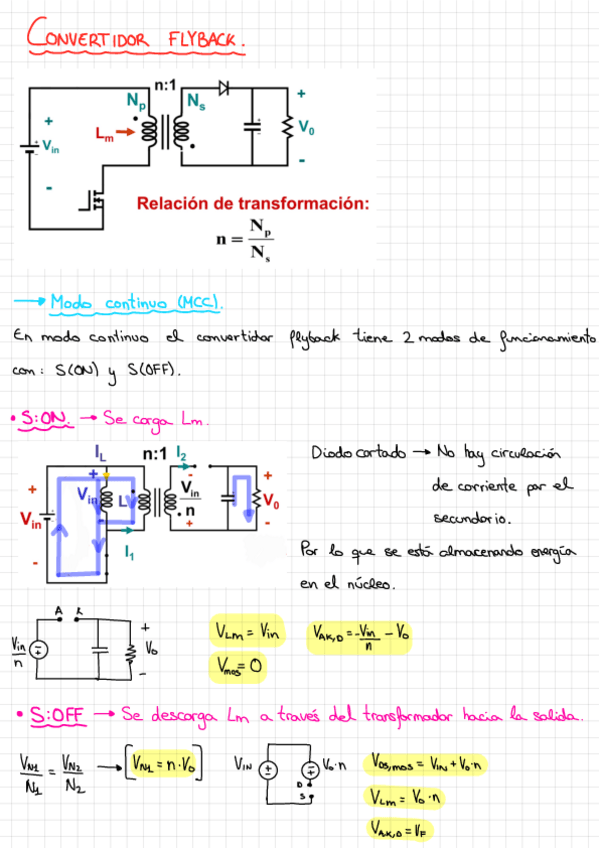 CONVERTIDOR FLYBACK.
n:1
Np Ns
+ +
Vin Lm V0
- -
Relación de transformación:
n = Np / Ns
→ Modo continuo (MCC).
En modo continuo el convertidor flyback tiene 2 modos de funcionamiento
con: S(ON) y S(OFF).
• S:ON. → Se carga Lm.
IL n:1 I2
Diodo cortado → No hay circulación
de corriente por el
secundario.
+ + - +
Vin Vin L Vin / n V0
- + -
I1
Por lo que se está almacenando energía
en el núcleo.
A K
Vin / n + Vo -
VLm = Vin
VAK,D = -Vin / n - Vo
Vmos = 0
• S:OFF → Se descarga Lm a través del transformador hacia la salida.
VN1 / N1 = VN2 / N2 → [VN1 = n·Vo]
VIN Vo·n
D
S
VDS,mos = VIN + Vo·n
VLm = Vo·n
VAK,D = VF